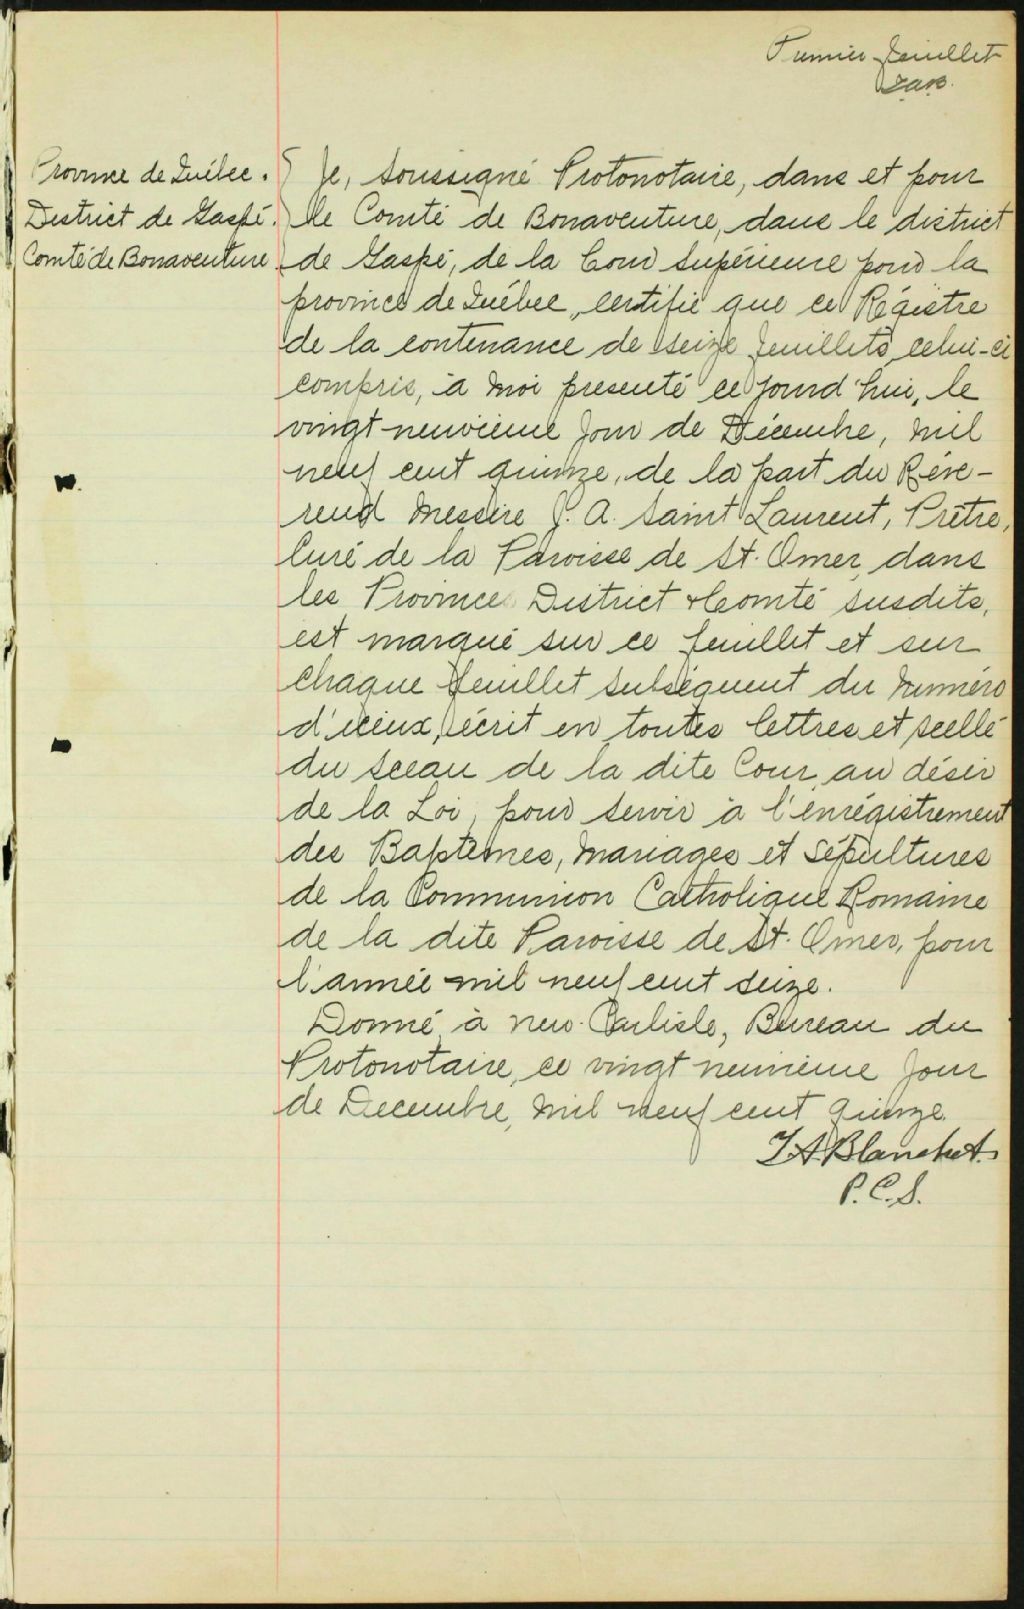 Premier feuillet
Province de Québec.
District de Gaspé.
Comté de Bonaventure
Je, soussigné Protonotaire, dans et pour
le Comté de Bonaventure, dans le district
de Gaspé, de la Cour Supérieure pour la
province de Québec, certifie que ce Régistre
de la contenance de seize feuillets, celui-ci
compris, à moi presenté ce jourd'hui, le
vingt neuvième jour de Décembre, mil
neuf cent quinze, de la part du Réve-
rend Messire J. A. Saint Laurent, Prêtre,
Curé de la Paroisse de St. Omer, dans
les Province District & Comté susdits,
est marqué sur ce feuillet et sur
chaque feuillet subséquent du numéro
d'iceux, écrit en toutes lettres et scellé
du sceau de la dite Cour, au désir
de la Loi, pour servir à l'enrégistrement
des Baptêmes, Mariages et Sépultures
de la Communion Catholique Romaine
de la dite Paroisse de St. Omer, pour
l'année mil neuf cent seize.
Donné à New-Carlisle, Bureau du
Protonotaire, ce vingt neuvième jour
de Decembre, mil neuf cent quinze.
J.A. Blanchet.
P.C.S.